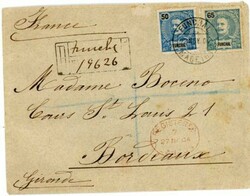 France
50
65
FUNCHAL
FUNCHAL
Funchal
19626
Madame Boceno
Cours St Louis 21
Bordeaux
Gironde